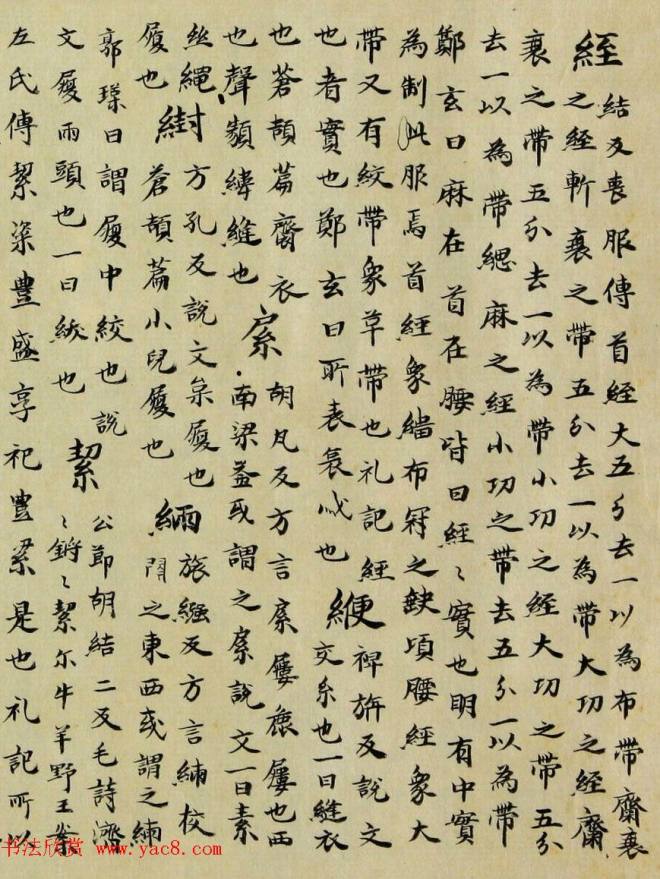 絰 結反喪服傳首絰大五分去一以為布帶齋衰
之絰斬衰之帶五分去一以為帶大功之絰齋
衰之帶五分去一以為帶小功之絰大功之帶五分
去一以為帶緦麻之絰小功之帶去五分一以為帶
鄭玄曰麻在首在腰皆曰絰〻實也明有中實
為制此服焉首絰象緇布冠之缺項腰絰象大
帶又有絞帶象革帶也礼記絰
也者實也鄭玄曰所表哀戚也 緶 裨旃反說文
交枲也一曰縫衣
也蒼頡篇齋衣
也聲類緶縫也 㡆 胡凡反方言㡆屨麁屨也西
南梁益或謂之㡆說文一曰素
絲繩 紨 方孔反說文枲履也
蒼頡篇小兒履也 緉 旅繈反方言緉校
關之東西或謂之緉
履也
郭璞曰謂履中絞也說
文履兩頭也一曰絞也 絜 公節胡結二反毛詩濟
〻鏘〻絜尔牛羊野王案
左氏傳絜粢豐盛享祀豊絜是也礼記所以
书法欣赏 www.yac8.com